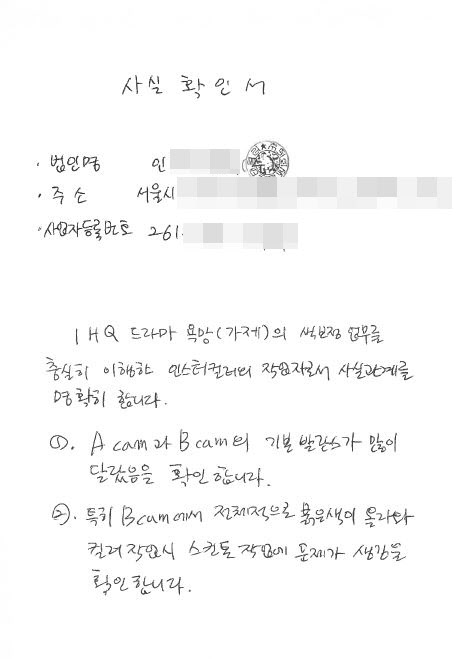 사실 확인서
· 법인명 인
· 주소 서울시
· 사업자등록번호 261.
IHQ 드라마 욕망(가제)의 색보정 업무를
충실히 이행한 인스터컬러의 작업자로서 사실관계를
명확히 합니다.
①. A cam과 B cam의 기본 발란스가 많이
달랐음을 확인합니다.
②. 특히 B cam에서 전체적으로 붉은색이 올라와
컬러작업시 스킨톤 작업에 문제가 생김을
확인합니다.